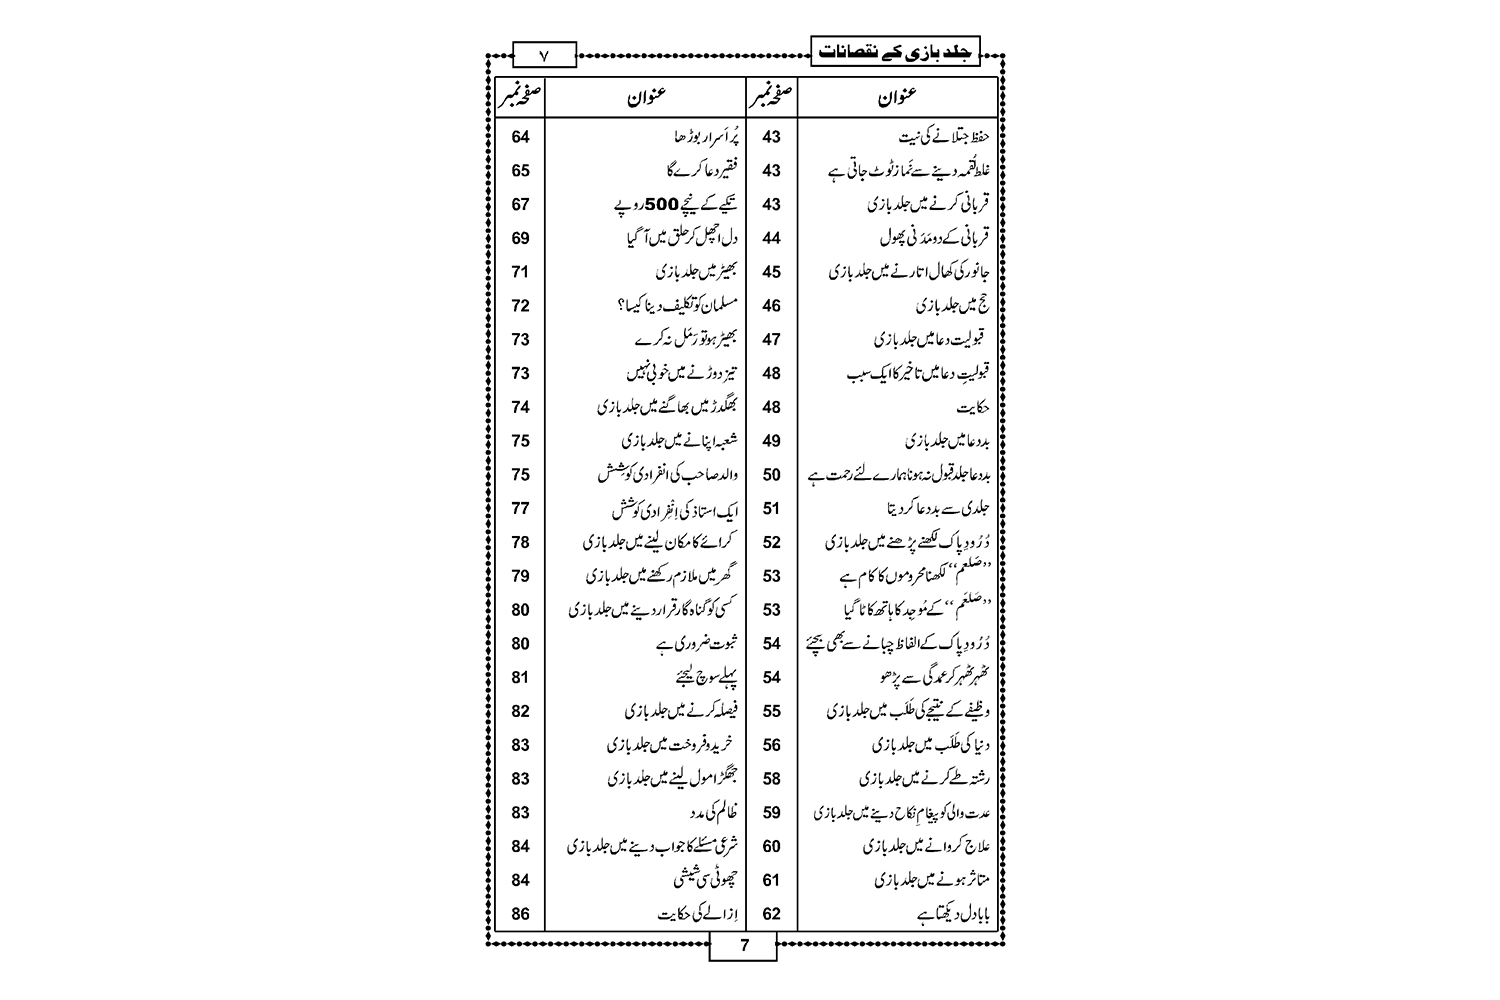 جلد بازی کے نقصانات ۷
عنوان صفحہ نمبر عنوان صفحہ نمبر
حفظ جتلانے کی نیت 43 پُر اَسرار بوڑھا 64
غلط لُقمہ دینے سے نَماز ٹوٹ جاتی ہے 43 فقیر دعا کرے گا 65
قربانی کرنے میں جلد بازی 43 تکیے کے نیچے 500 روپے 67
قربانی کے دو مَدَنی پھول 44 دل اچھل کر حلق میں آ گیا 69
جانور کی کھال اتارنے میں جلد بازی 45 بھیڑ میں جلد بازی 71
حج میں جلد بازی 46 مسلمان کو تکلیف دینا کیسا؟ 72
قبولیت دعا میں جلد بازی 47 بھیڑ ہو تو رَمَل نہ کرے 73
قبولیتِ دعا میں تاخیر کا ایک سبب 48 تیز دوڑنے میں خوبی نہیں 73
حکایت 48 بھگدڑ میں بھاگنے میں جلد بازی 74
بددعا میں جلد بازی 49 شعبہ اپنانے میں جلد بازی 75
بددعا جلد قبول نہ ہونا ہمارے لئے رحمت ہے 50 والد صاحب کی انفرادی کوشِش 75
جلدی سے بددعا کر دیتا 51 ایک استاذ کی اِنْفِرادی کوشش 77
دُرُودِ پاک لکھنے پڑھنے میں جلد بازی 52 کرائے کا مکان لینے میں جلد بازی 78
’’صَلعم‘‘ لکھنا محروموں کا کام ہے 53 گھر میں ملازم رکھنے میں جلد بازی 79
’’صَلعَم‘‘ کے مُوجِد کا ہاتھ کاٹا گیا 53 کسی کو گناہ گار قرار دینے میں جلد بازی 80
دُرُودِ پاک کے الفاظ چبانے سے بھی بچئے 54 ثبوت ضروری ہے 80
ٹھہر ٹھہر کر عمدگی سے پڑھو 54 پہلے سوچ لیجئے 81
وظیفے کے نتیجے کی طَلَب میں جلد بازی 55 فیصلہ کرنے میں جلد بازی 82
دنیا کی طَلَب میں جلد بازی 56 خرید و فروخت میں جلد بازی 83
رشتہ طے کرنے میں جلد بازی 58 جھگڑا مول لینے میں جلد بازی 83
عدت والی کو پیغامِ نکاح دینے میں جلد بازی 59 ظالم کی مدد 83
علاج کروانے میں جلد بازی 60 شرعی مسئلے کا جواب دینے میں جلد بازی 84
متاثر ہونے میں جلد بازی 61 چھوٹی سی شیشی 84
بابا دل دیکھتا ہے 62 اِزالے کی حکایت 86
7